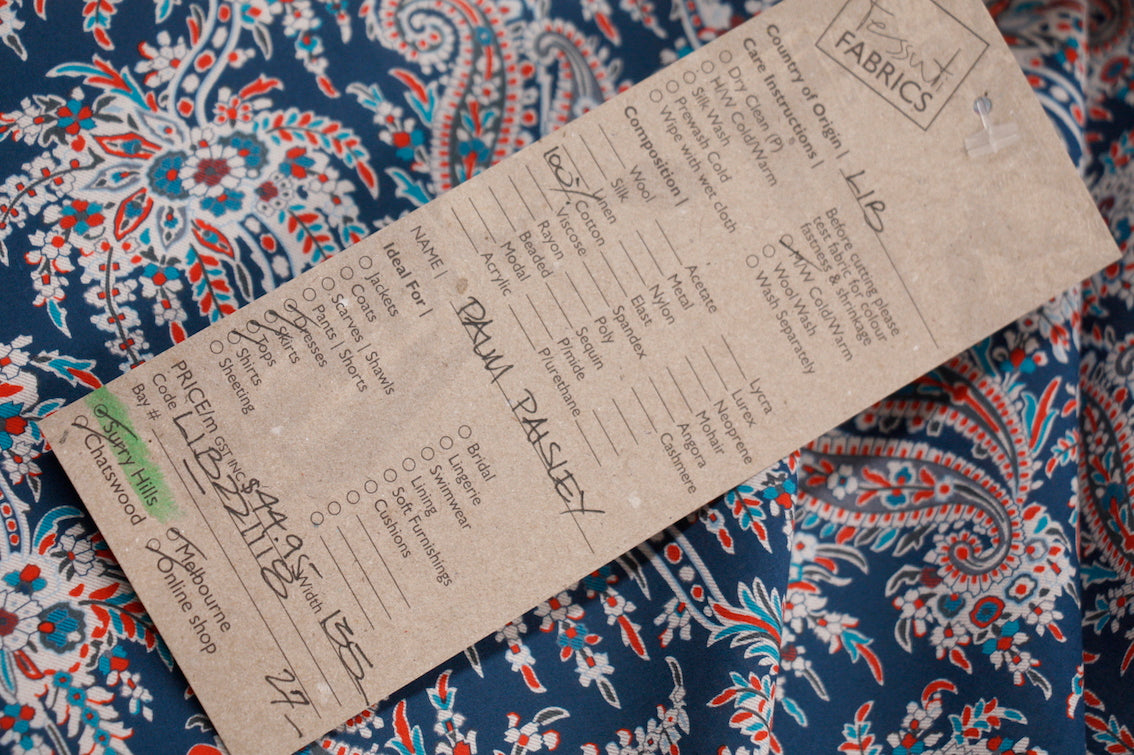 Tessuti
FABRICS
Country of Origin | LIB
Care Instructions |
Dry Clean (P)
H/W Cold/Warm
Silk Wash
Prewash Cold
Wipe with wet cloth
Before cutting please
test fabric for colour
fastness & shrinkage
M/W Cold/Warm
Wool Wash
Wash Separately
Composition |
Wool
Silk
Linen
100% Cotton
Viscose
Rayon
Beaded
Modal
Acrylic
Acetate
Metal
Nylon
Elast
Spandex
Poly
Sequin
P/mide
P/urethane
Lycra
Lurex
Neoprene
Mohair
Angora
Cashmere
NAME | PALM PAISLEY
Ideal For |
Jackets
Coats
Scarves | Shawls
Pants | Shorts
Dresses
Skirts
Tops
Shirts
Sheeting
Bridal
Lingerie
Swimwear
Lining
Soft Furnishings
Cushions
PRICE/m GST INC $44.95 Width 135
Code LIB221118
Bay # 27
Surry Hills
Chatswood
Melbourne
Online shop